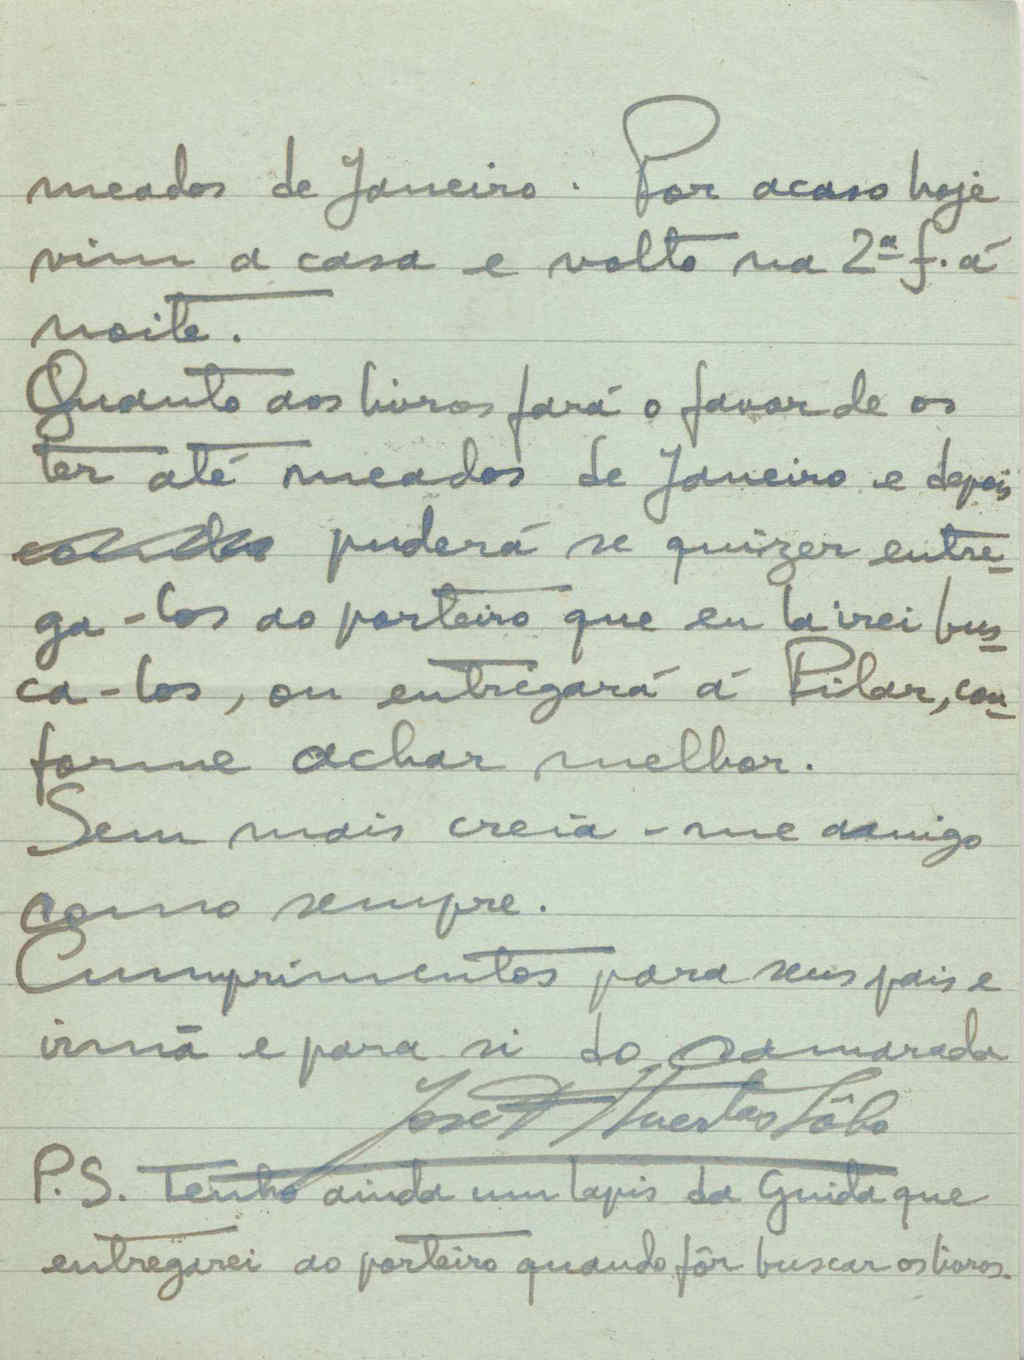 meados de Janeiro. Por acaso hoje
vim a casa e volto na 2ª f. á
noite.
Quanto aos livros fará o favor de os
ter até meados de Janeiro e depois
puderá se quizer entre-
ga-los ao porteiro que eu la irei bus-
ca-los, ou entregará á Pilar, con-
forme achar melhor.
Sem mais creia-me amigo
como sempre.
Cumprimentos para seus pais e
irmã e para si do camarada
José Huertas Lôbo
P.S. Tenho ainda um lapis da Guida que
entregarei ao porteiro quando fôr buscar os livros.